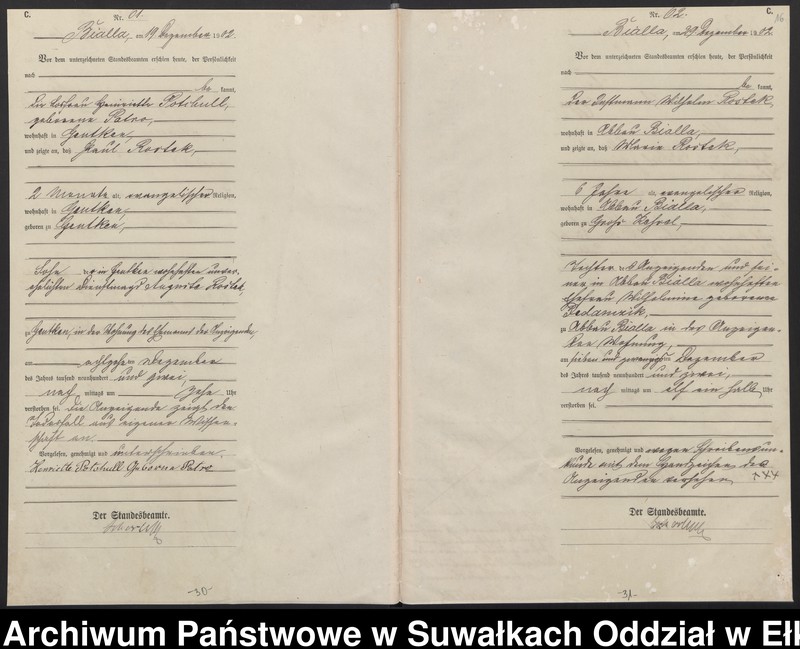 C.
Nr. 61.
Bialla, am 19 Dezember 1902.
Vor dem unterzeichneten Standesbeamten erschien heute, der Persönlichkeit
nach
be kannt,
die Losfrau Henriette Potschull,
geborene Patro,
wohnhaft in Gentken,
und zeigte an, daß Paul Rostek,
2 Monate alt, evangelischer Religion,
wohnhaft in Gentken,
geboren zu Gentken,
Sohn der in Gentken wohnhaften unver-
ehelichten Dienstmagd Auguste Rostek,
zu Gentken, in der Wohnung des Ehemanns der Anzeigenden,
am achtzehn ten Dezember
des Jahres tausend neunhundert und zwei,
nach mittags um zehn Uhr
verstorben sei. Die Anzeigende zeigt den
Todesfall aus eigener Wissen-
schaft an.
Vorgelesen, genehmigt und unterschrieben.
Henriette Potschull Geborne Patro
Der Standesbeamte.
-30-
Nr. 62.
C.
16
Bialla, am 29 Dezember 1902.
Vor dem unterzeichneten Standesbeamten erschien heute, der Persönlichkeit
nach
be kannt,
der Wilhelm Rostek,
wohnhaft in Abbau Bialla,
und zeigte an, daß Marie Rostek,
6 Jahre alt, evangelischer Religion,
wohnhaft in Abbau Bialla,
geboren zu Groß
Tochter des Anzeigenden und sei-
ner in Abbau Bialla wohnhaften
Ehefrau Wilhelmine geborenen
zu Abbau Bialla in des Anzeigen-
den Wohnung,
am sieben und zwanzigsten Dezember
des Jahres tausend neunhundert und zwei,
nach mittags um elf ein halb Uhr
verstorben sei.
Vorgelesen, genehmigt und wegen Schreibensun-
kunde mit dem Handzeichen des
Anzeigenden versehen +++
Der Standesbeamte.
-31-
Archiwum Państwowe w Suwałkach Oddział w Ełk